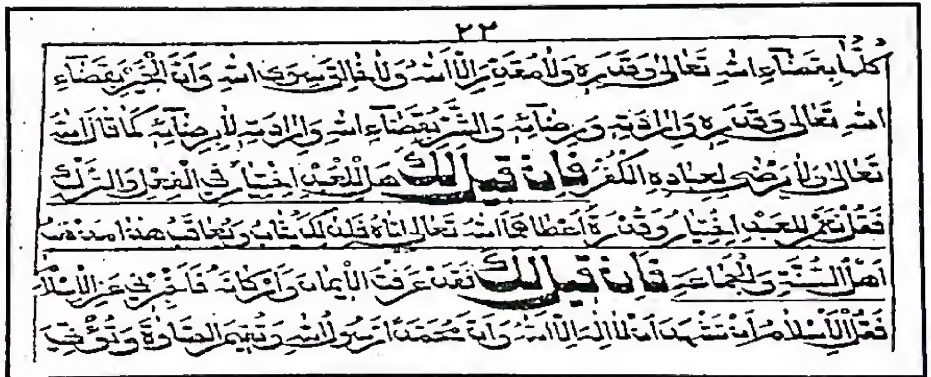 ٢٣
كُلَّهَا بِقَضَاءِ اللهِ تَعَالَى وَقَدَرِهِ وَلَا مُقَدِّرَ إِلَّا اللهُ وَلَا خَالِقَ سِوَى اللهِ وَأَنَّ الْخَيْرَ بِقَضَاءِ
اللهِ تَعَالَى وَقَدَرِهِ وَإِرَادَتِهِ وَرِضَائِهِ وَالشَّرَّ بِقَضَاءِ اللهِ وَإِرَادَتِهِ لَا بِرِضَائِهِ كَمَا قَالَ اللهُ
تَعَالَى وَلَا يَرْضَى لِعِبَادِهِ الْكُفْرَ فَإِنْ قِيلَ لَكَ هَلْ لِلْعَبْدِ اخْتِيَارٌ فِي الْفِعْلِ وَالتَّرْكِ
فَقُلْ نَعَمْ لِلْعَبْدِ اخْتِيَارٌ وَقُدْرَةٌ أَعْطَاهُمَا اللهُ تَعَالَى إِيَّاهُ فَلِذَلِكَ يُثَابُ وَيُعَاقَبُ هَذَا مَذْهَبُ
أَهْلِ السُّنَّةِ وَالْجَمَاعَةِ فَإِنْ قِيلَ لَكَ فَقَدْ عَرَفْتَ الْإِيمَانَ وَأَرْكَانَهُ فَأَخْبِرْنِي عَنِ الْإِسْلَامِ
فَقُلِ الْإِسْلَامُ أَنْ تَشْهَدَ أَنْ لَا إِلَهَ إِلَّا اللهُ وَأَنَّ مُحَمَّدًا رَسُولُ اللهِ وَتُقِيمَ الصَّلٰوةَ وَتُؤْتِيَ